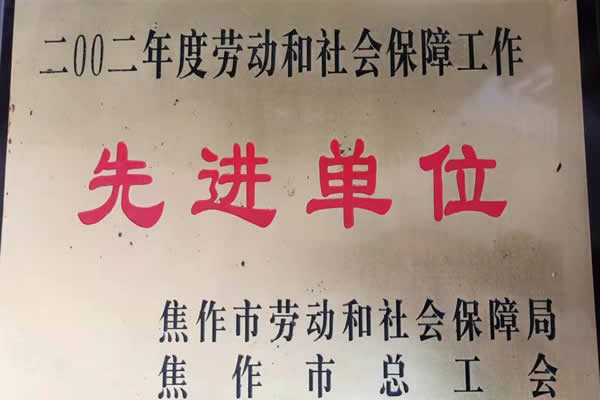 二00二年度劳动和社会保障工作
先进单位
焦作市劳动和社会保障局
焦作市总工会